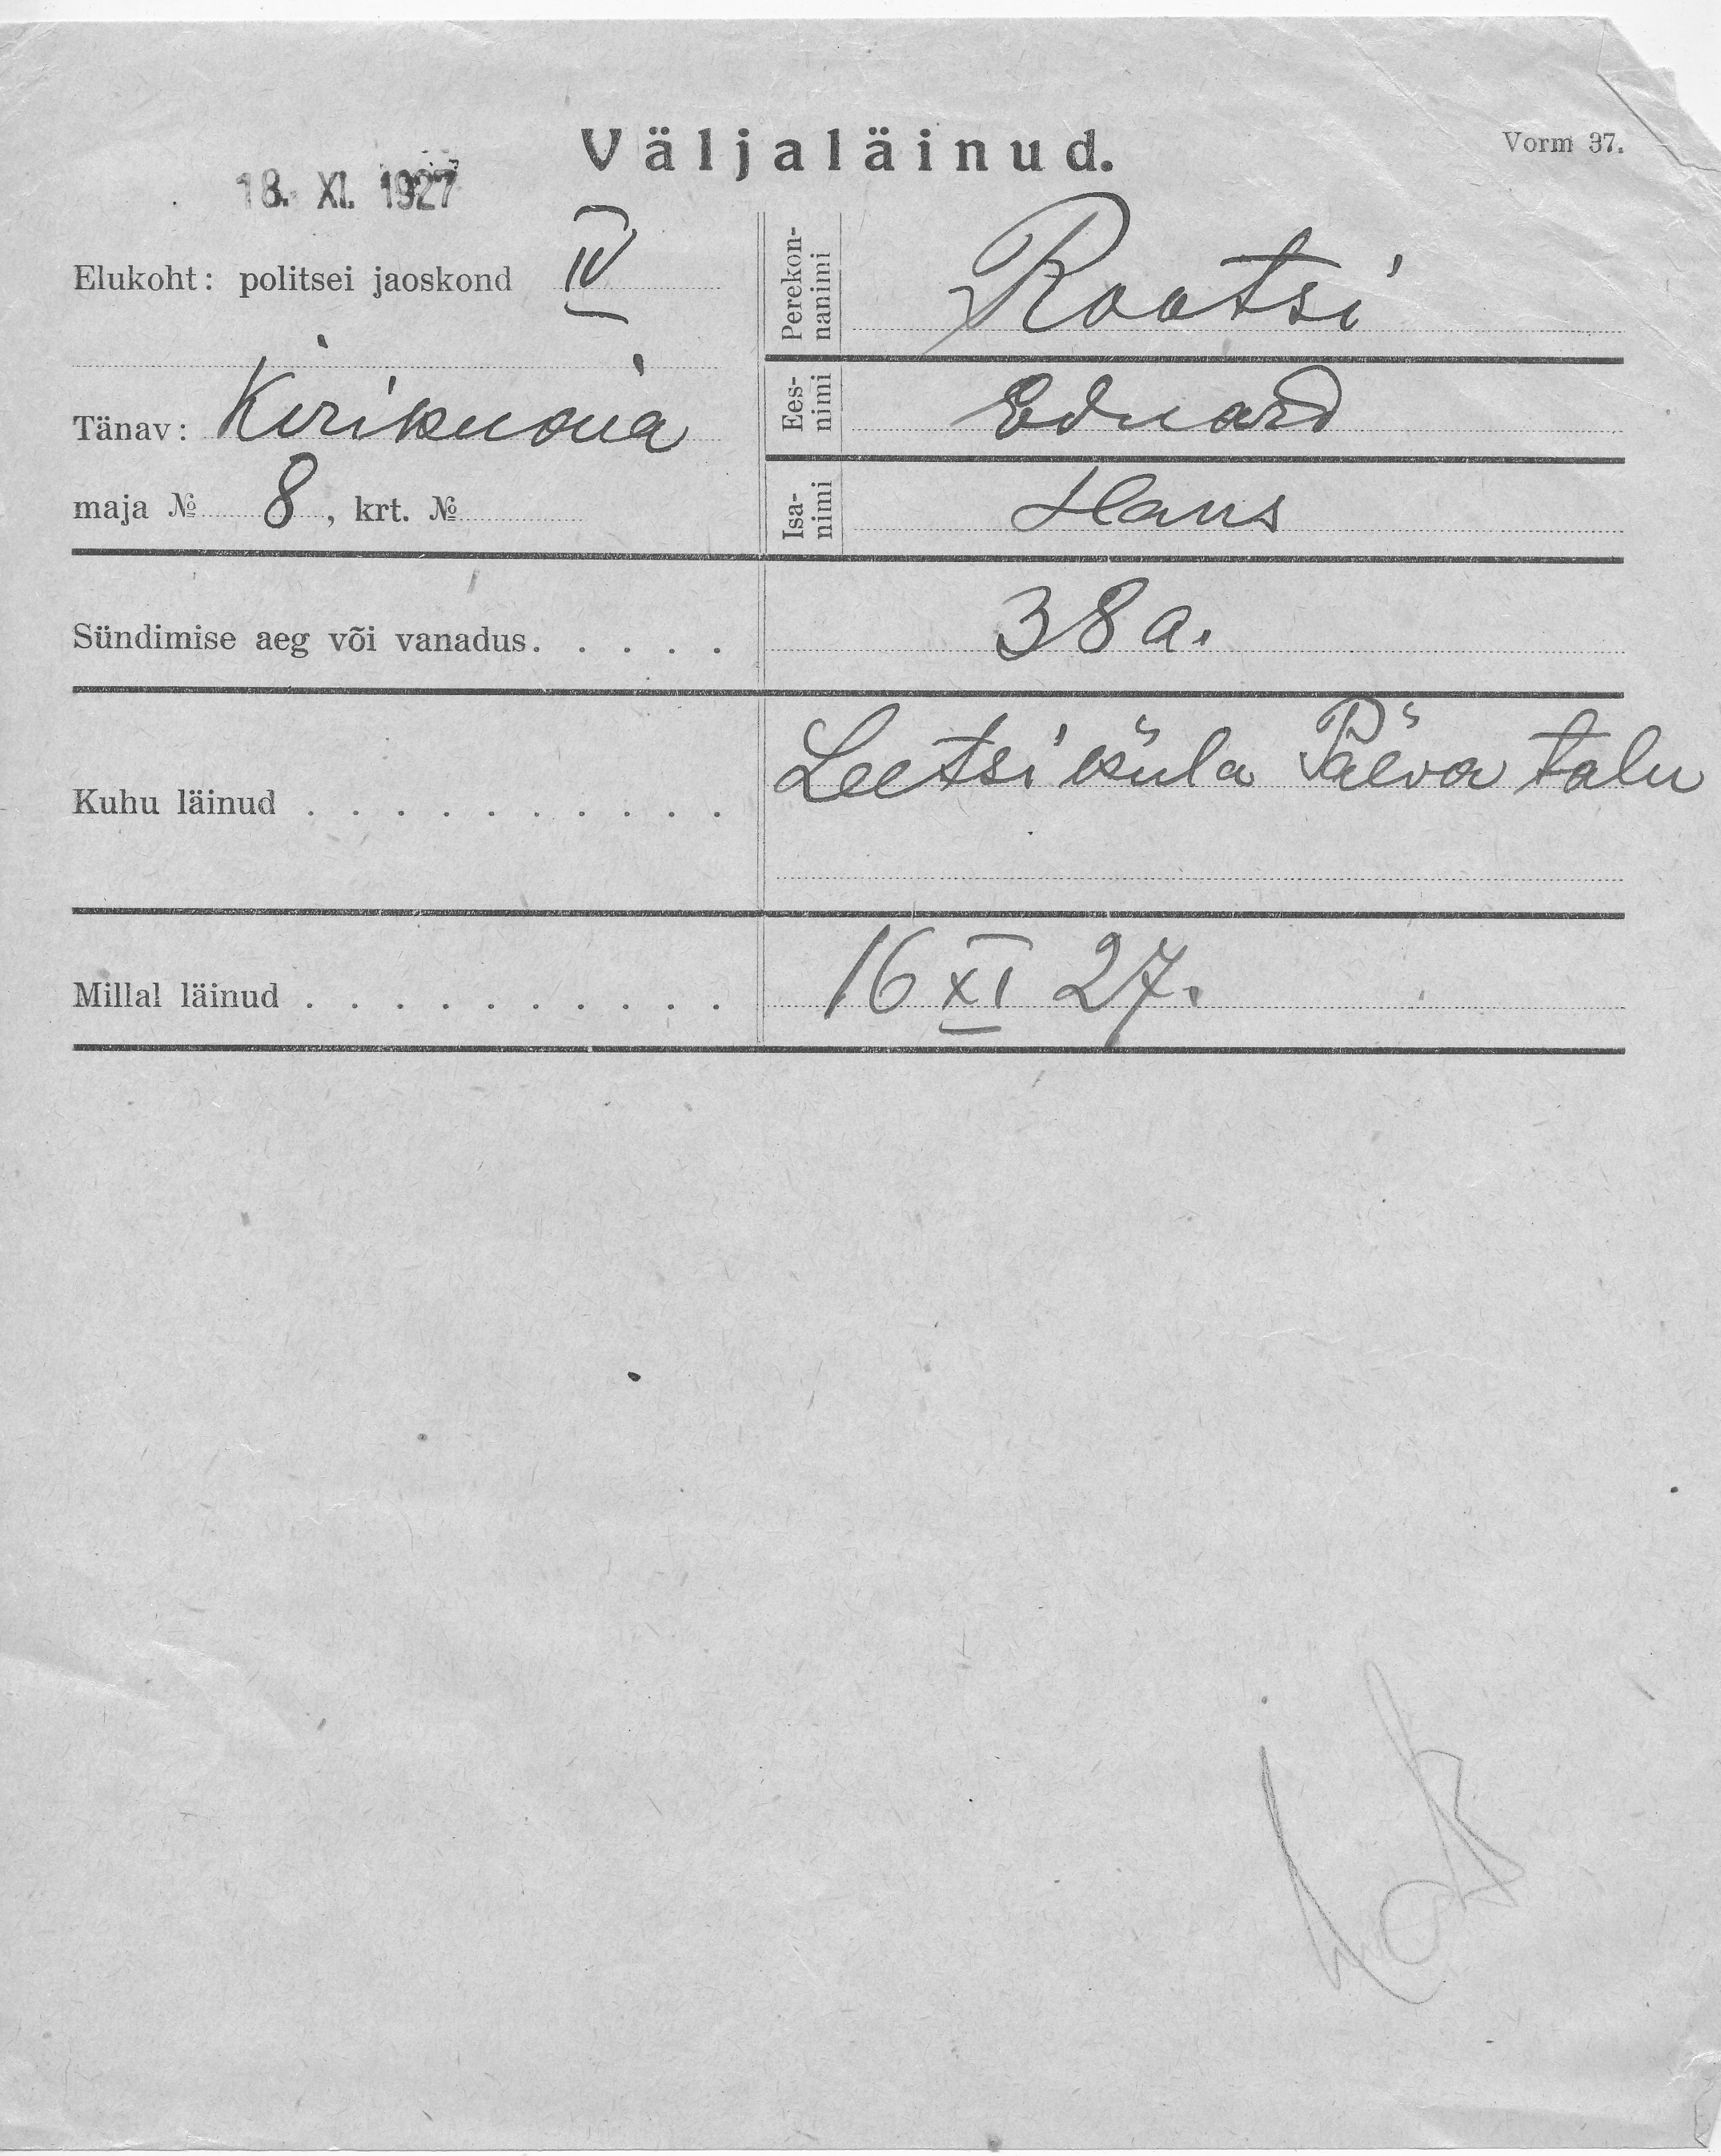 Väljaläinud.
Vorm 37.
18. XI. 1927
Elukoht: politsei jaoskond IV
Tänav:
maja № 8, krt. №
Perekon-
nanimi
Rootsi
Ees-
nimi
Eduard
Isa-
nimi
Hans
Sündimise aeg või vanadus. . . . . 38 a.
Kuhu läinud . . . . . . . . . . Leetsi küla Päeva talu
Millal läinud . . . . . . . . . . 16 XI 27.